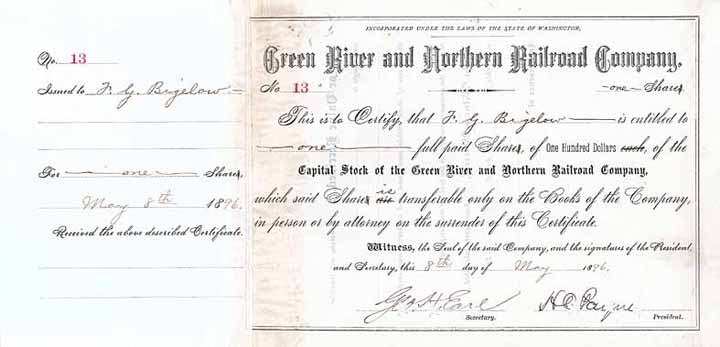 No. 13
Issued to F. G. Bigelow
For one Shares,
May 8th 1896.
Received the above described Certificate.
INCORPORATED UNDER THE LAWS OF THE STATE OF WASHINGTON,
Green River and Northern Railroad Company.
No 13 one Shares
This is to Certify, that F. G. Bigelow is entitled to
one full paid Shares, of One Hundred Dollars each, of the
Capital Stock of the Green River and Northern Railroad Company,
which said Shares is are transferable only on the Books of the Company,
in person or by attorney on the surrender of this Certificate.
Witness, the Seal of the said Company, and the signatures of the President,
and Secretary, this 8th day of May 1896.
Geo. H. Earl H C Payne
Secretary. President.